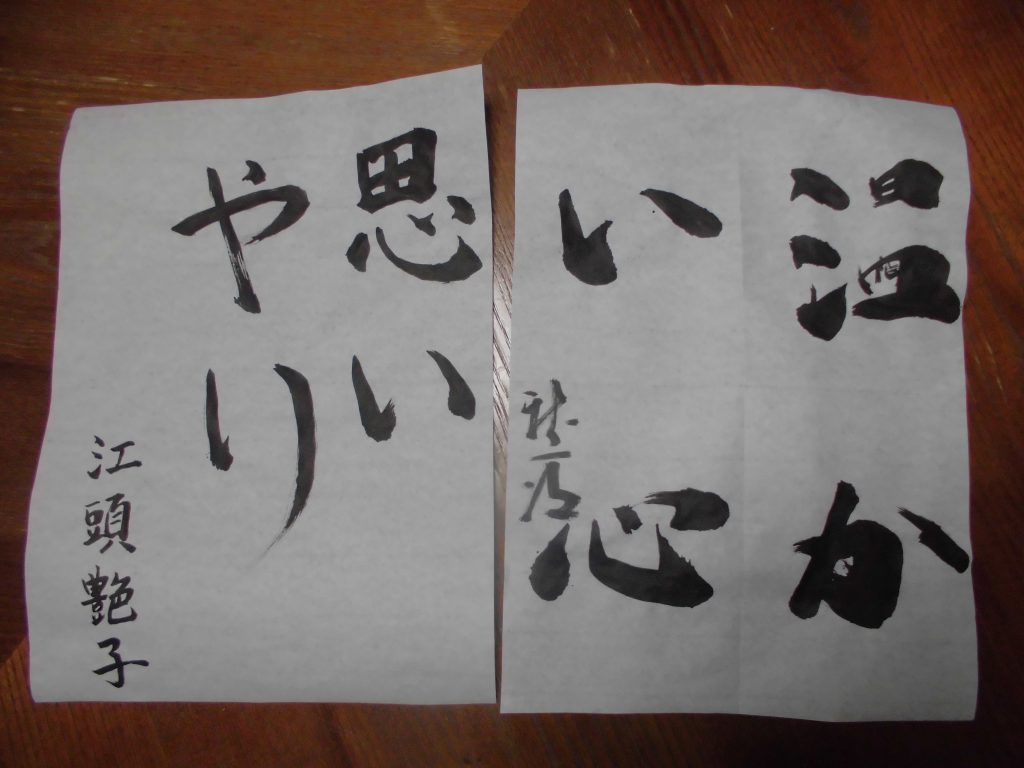 温か
い心
思い
やり
江頭艶子